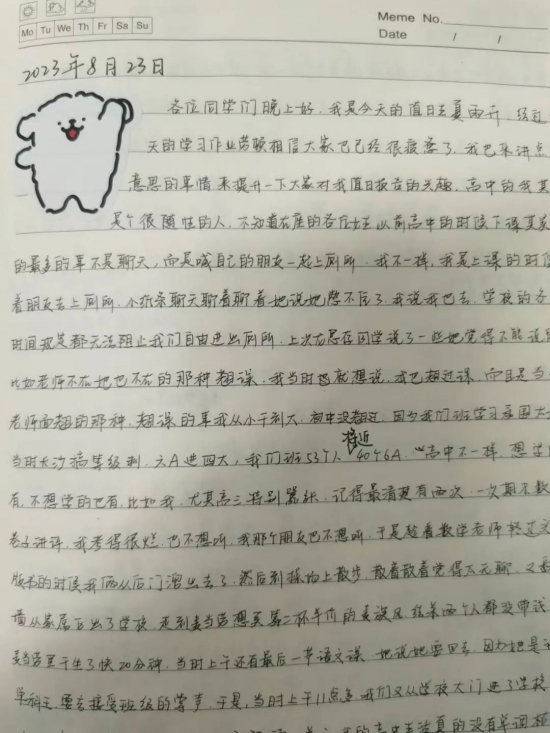 Meme No.
Mo Tu We Th Fr Sa Su
Date / /
2023年8月23日
各位同学们晚上好，我是今天的值日生夏雨开，经过
天的学习作业劳顿相信大家也已经很疲惫了，我也来讲点
意思的事情来提升一下大家对我值日报告的兴趣，高中的我其
是个很随性的人，不知道在座的各位女生以前高中的时候下课
的最多的事不是聊天，而是喊自己的朋友一起上厕所，我不一样，我是上课的时候
着朋友去上厕所，小纸条聊天聊着聊着她说她憋不住了，我说我也去，学校的
时间规定都无法阻止我们自由进出厕所，上次在同学说了一些他觉得不能说
比如老师不在他也不在的那种翘课，我当时也就想说，我也翘过课，而且是当
老师面翘的那种，翘课的事我从小干到大，初中没翘过，因为我们班学习氛围太
当时长沙搞等级制，六A进四大，我们班53个人接近40个6A，高中不一样，想学
有，不想学的也有，比如我，尤其高三特别嚣张，记得最清楚有两次，一次期末数
卷子讲评，我考得很烂，也不想听，我那个朋友也不想听，于是趁着数学老师转过
版书的时候我俩从后门溜出去了，然后到操场上散步，散着散着觉得太无聊，又
墙从家属区出了学校，走到麦当劳想买第二杯半价的麦旋风，结果两个人都没带
麦当劳里干坐了快20分钟，当时上午还有最后一节语文课，她说她要回去，因为她是
单科王，要去接受班级的掌声，于是，当时上午11点多，我们又从学校大门进了学校
我的高中生活真的没有单调